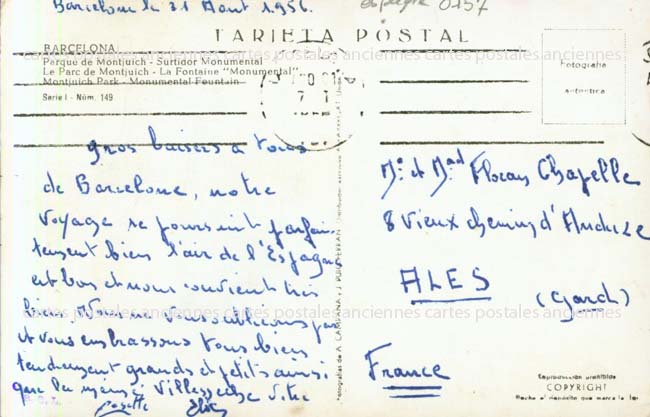 Barcelone le 31 Août 1956.
espagne 0157
TARJETA POSTAL
BARCELONA
Parque de Montjuich - Surtidor Monumental
Le Parc de Montjuich - La Fontaine "Monumental"
Montjuich Park - Monumental Fountain
Serie I - Núm. 149
Fotografía
auténtica
cartes postales anciennes cartes postales anciennes cartes postales anciennes
gros baisers a tous
de Barcelone, notre
voyage se poursuit parfai-
tement bien l'air de l'Espagne
est bon et nous convient très
bien. Nous ne vous oublions pas
et vous embrassons tous bien
tendrement grands et petits ainsi
que la
Cosette
Mr et Mad Chapelle
8 vieux chemin d'Anduze
ALES
(Gard)
France
cartes postales anciennes cartes postales anciennes cartes postales anciennes
Fotografías de A. CAMPAÑÁ y J. PUIG-FERRAN
Reproducción prohibida
COPYRIGHT